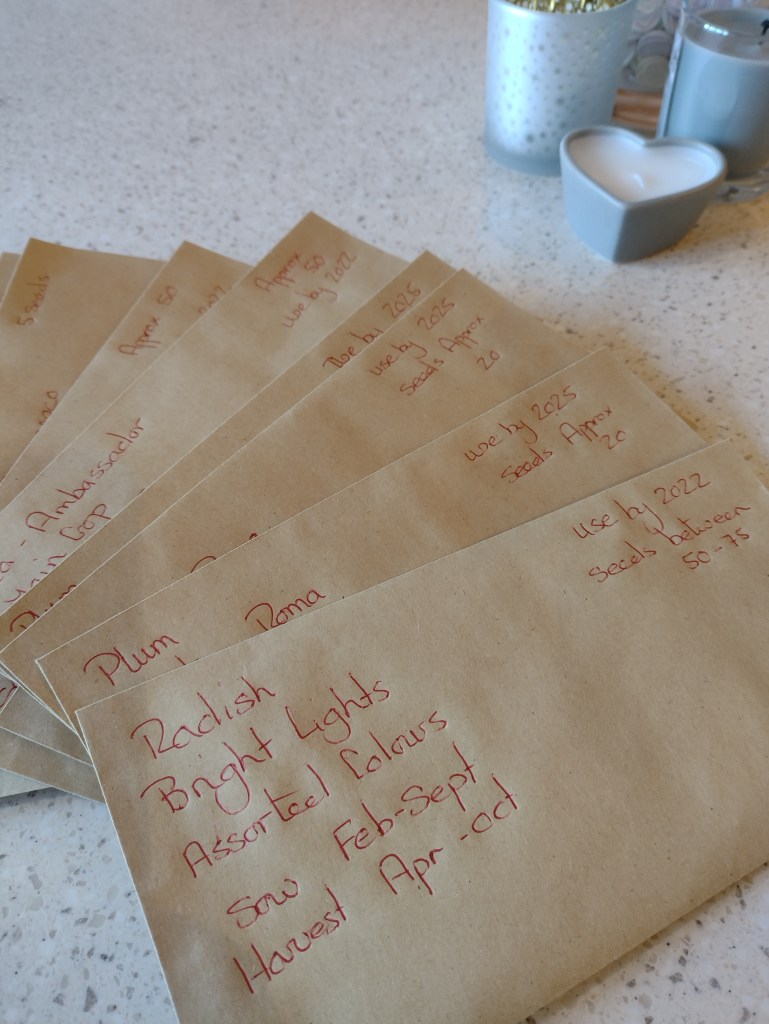 5 seeds
Approx 50
2022
Approx
50
use by 2022
Ambassador
Main Crop
use by 2025
Plum
use by 2025
seeds Approx
20
use by 2025
seeds Approx
20
Plum Roma
use by 2022
seeds between
50-75
Radish
Bright Lights
Assorted Colours
Sow Feb-Sept
Harvest Apr-Oct